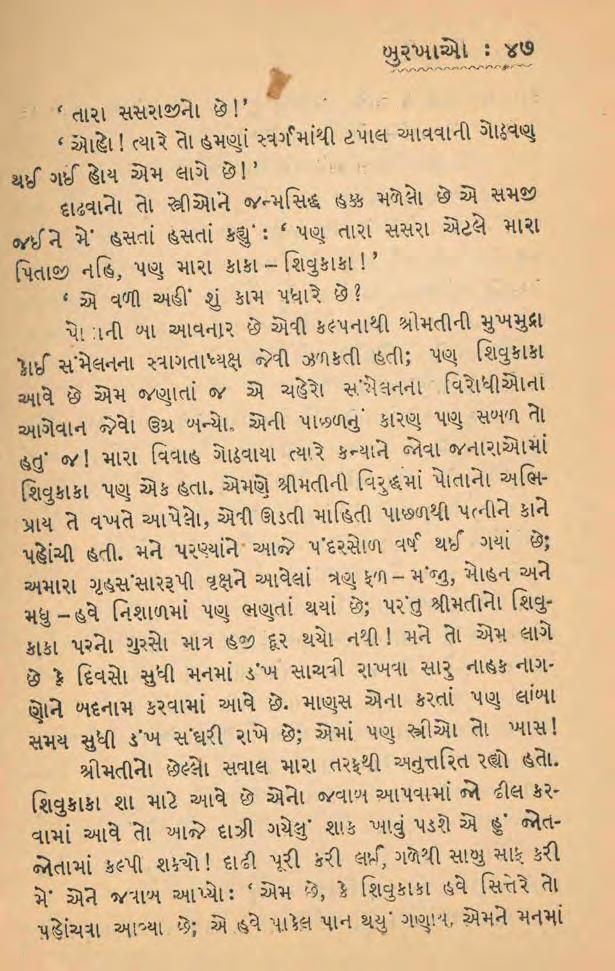 બુરખાઓ : ૪૭
‘ તારા સસરાજીનો છે!’
‘ ઓહો! ત્યારે તો હમણાં સ્વર્ગમાંથી ટપાલ આવવાની ગોઠવણ
થઈ ગઈ હોય એમ લાગે છે!’
દાઢવાનો તો સ્ત્રીઓને જન્મસિદ્ધ હક્ક મળેલો છે એ સમજી
જઈને મેં હસતાં હસતાં કહ્યું : ‘ પણ તારા સસરા એટલે મારા
પિતાજી નહિ, પણ મારા કાકા – શિવુકાકા!’
‘ એ વળી અહીં શું કામ પધારે છે?
ની બા આવનાર છે એવી કલ્પનાથી શ્રીમતીની મુખમુદ્રા
કોઈ સંમેલનના સ્વાગતાધ્યક્ષ જેવી ઝળકતી હતી; પણ શિવુકાકા
આવે છે એમ જણાતાં જ એ ચહેરો સંમેલનના વિરોધીઓના
આગેવાન જેવો ઉગ્ર બન્યો. એની પાછળનું કારણ પણ સબળ તો
હતું જ! મારા વિવાહ ગોઠવાયા ત્યારે કન્યાને જોવા જનારાઓમાં
શિવુકાકા પણ એક હતા. એમણે શ્રીમતીની વિરુદ્ધમાં પોતાનો અભિ-
પ્રાય તે વખતે આપેલો, એવી ઊડતી માહિતી પાછળથી પત્નીને કાને
પહોંચી હતી. મને પરણ્યાંને આજે પંદરસોળ વર્ષ થઈ ગયાં છે;
અમારા ગૃહસંસારરૂપી વૃક્ષને આવેલાં ત્રણ ફળ – મંજુ, મોહન અને
મધુ – હવે નિશાળમાં પણ ભણતાં થયાં છે; પરંતુ શ્રીમતીનો શિવુ-
કાકા પરનો ગુસ્સો માત્ર હજી દૂર થયો નથી! મને તો એમ લાગે
છે કે દિવસો સુધી મનમાં ડંખ સાચવી રાખવા સારુ નાહક નાગ-
ણોને બદનામ કરવામાં આવે છે. માણસ એના કરતાં પણ લાંબા
સમય સુધી ડંખ સંઘરી રાખે છે; એમાં પણ સ્ત્રીઓ તો ખાસ!
શ્રીમતીનો છેલ્લો સવાલ મારા તરફથી અનુત્તરિત રહ્યો હતો.
શિવુકાકા શા માટે આવે છે એનો જવાબ આપવામાં જો ઢીલ કર-
વામાં આવે તો આજે દાઝી ગયેલું શાક ખાવું પડશે એ હું જોત-
જોતામાં કલ્પી શક્યો! દાઢી પૂરી કરી લઈ, ગળેથી સાબુ સાફ કરી
મેં એને જવાબ આપ્યો : ‘ એમ છે, કે શિવુકાકા હવે સિત્તેરે તો
પહોંચવા આવ્યા છે; એ હવે પાકેલ પાન થયું ગણાય, એમને મનમાં